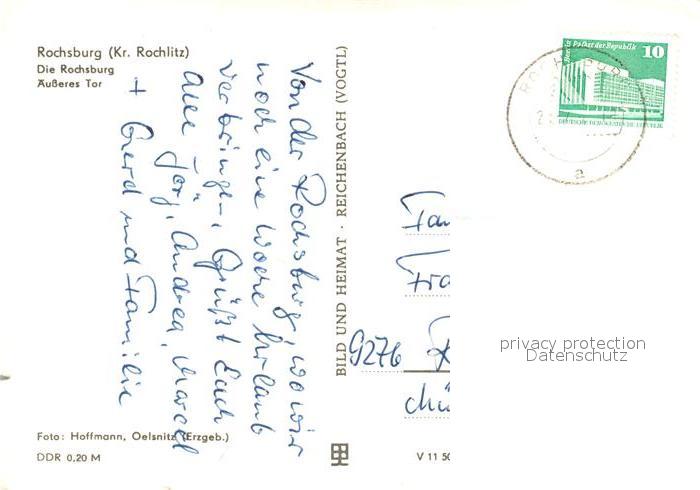 Rochsburg (Kr. Rochlitz)
Die Rochsburg
Äußeres Tor
Von der Rochsburg, wo wir
noch eine Woche Urlaub
verbringen, Grüßt Euch
alle Jörg, Andrea, Marcel
+ Gerd und Familie
Foto: Hoffmann, Oelsnitz (Erzgeb.)
DDR 0,20 M
BILD UND HEIMAT · REICHENBACH (VOGTL)
V 11 50
Berlin Palast der Republik 10
DEUTSCHE DEMOKRATISCHE REPUBLIK
a
Fam
Fra
9276
privacy protection
Datenschutz